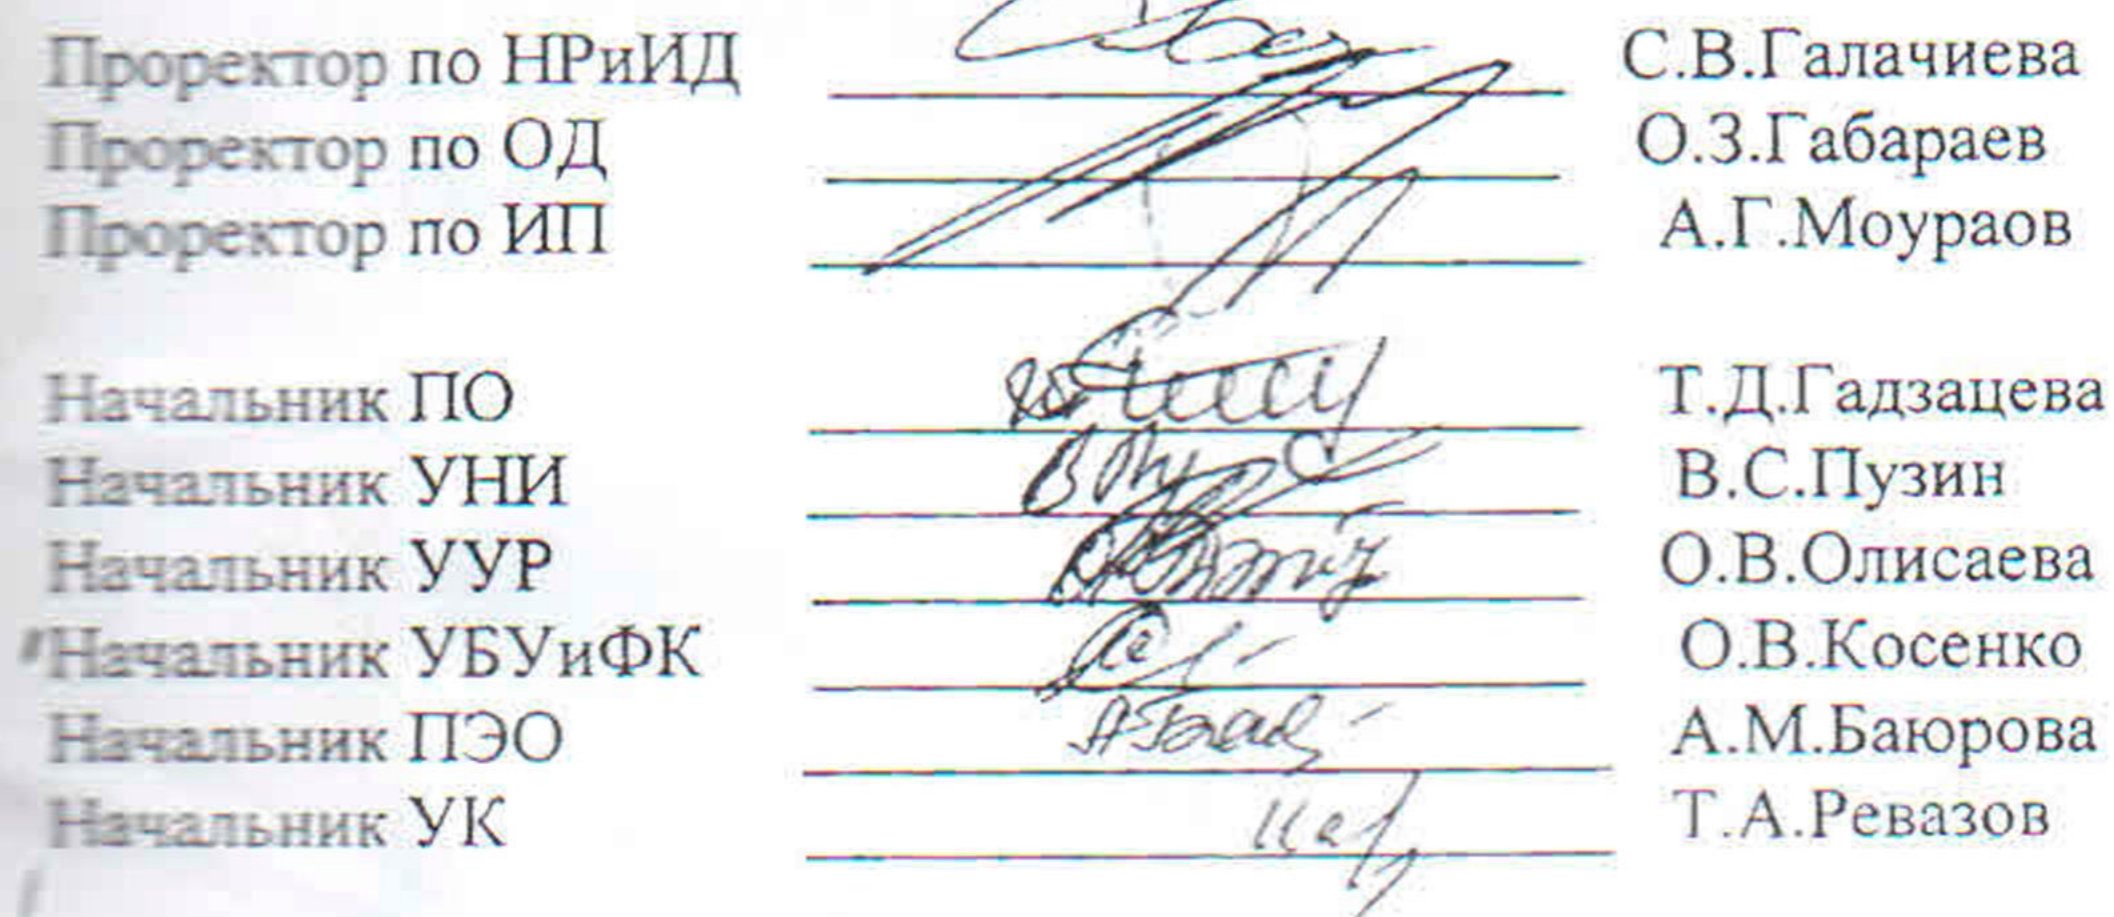 Проректор по НРиИД С.В.Галачиева
Проректор по ОД О.З.Габараев
Проректор по ИП А.Г.Моураов
Начальник ПО Т.Д.Гадзацева
Начальник УНИ В.С.Пузин
Начальник УУР О.В.Олисаева
Начальник УБУиФК О.В.Косенко
Начальник ПЭО А.М.Баюрова
Начальник УК Т.А.Ревазов